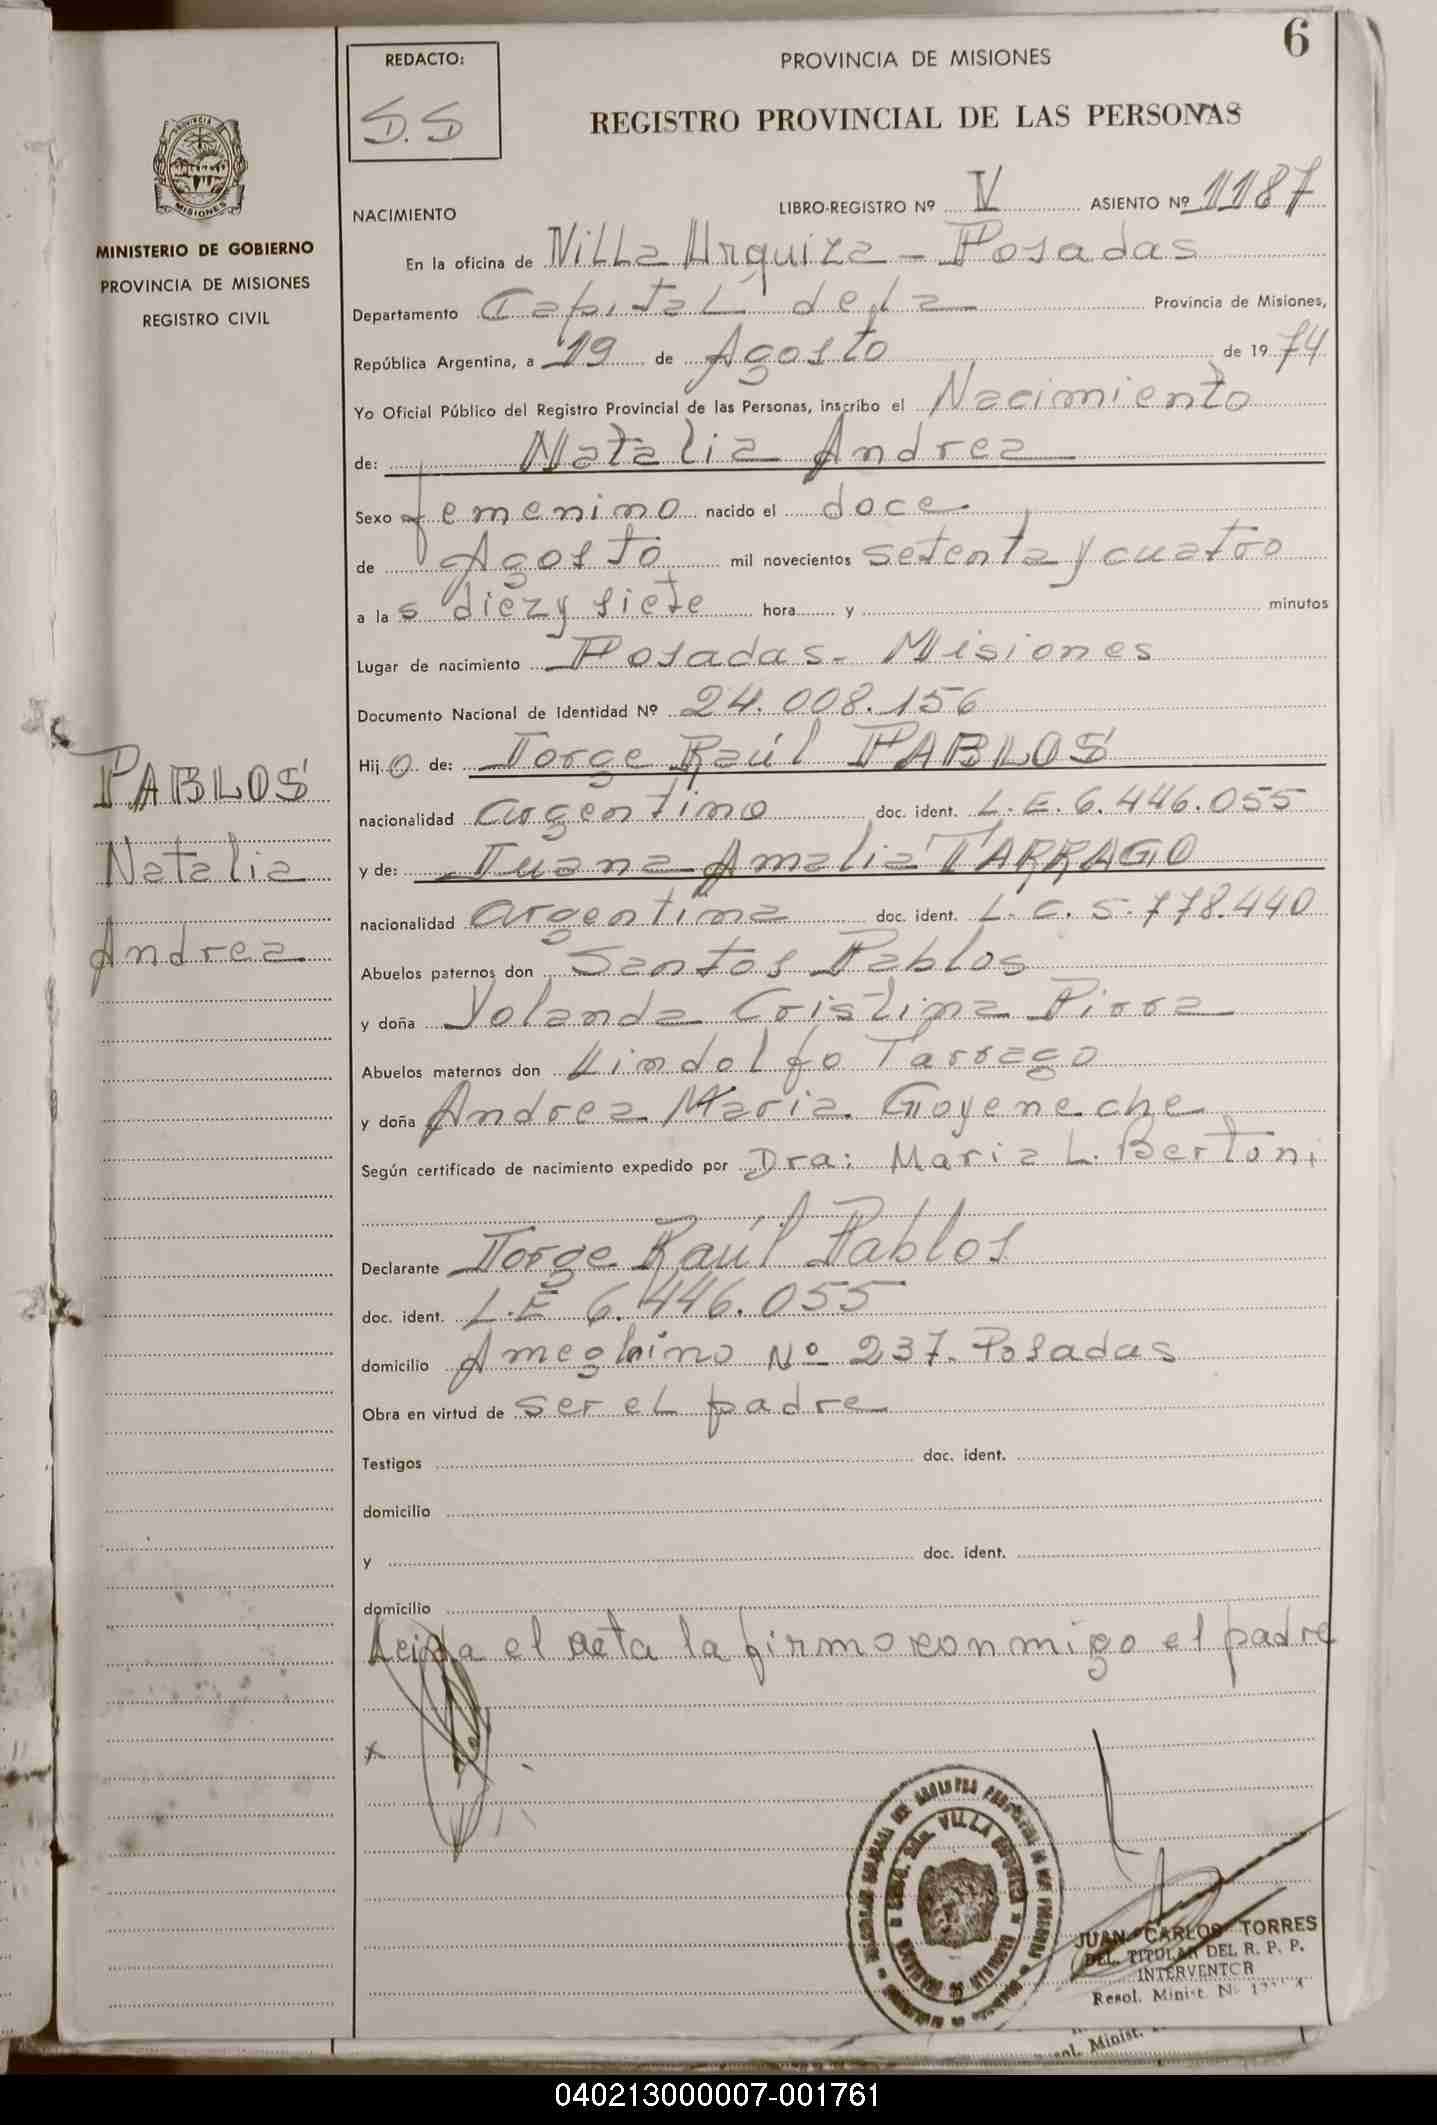 6
REDACTO:
S.S
PROVINCIA DE MISIONES
REGISTRO PROVINCIAL DE LAS PERSONAS
PROVINCIA
MISIONES
MINISTERIO DE GOBIERNO
PROVINCIA DE MISIONES
REGISTRO CIVIL
NACIMIENTO LIBRO-REGISTRO Nº IV ASIENTO Nº 1187
En la oficina de Villa Urquiza - Posadas
Departamento Capital de La Provincia de Misiones,
República Argentina, a 19 de Agosto de 1974
Yo Oficial Público del Registro Provincial de las Personas, inscribo el Nacimiento
de: Natalia Andrea
Sexo femenino nacido el doce
de Agosto mil novecientos setenta y cuatro
a la s diez y siete hora y minutos
Lugar de nacimiento Posadas - Misiones
Documento Nacional de Identidad Nº 24.008.156
Hij o de: Jorge Raúl PABLOS
nacionalidad argentino doc. ident. L.E. 6.446.055
y de: Juana Amalia TARRAGO
nacionalidad argentina doc. ident. L.C. 5.778.440
Abuelos paternos don Santos Pablos
y doña Yolanda Cristina Pirra
Abuelos maternos don Lindolfo Tarrago
y doña Andrea Maria Goyeneche
Según certificado de nacimiento expedido por Dra: Maria L. Bertoni
Declarante Jorge Raúl Pablos
doc. ident. L.E 6.446.055
domicilio Ameghino Nº 237. Posadas
Obra en virtud de ser el padre
Testigos doc. ident.
domicilio
y doc. ident.
domicilio
Leida el acta la firmo conmigo el padre
x
PABLOS
Natalia
Andrea
VILLA URQUIZA
JUAN CARLOS TORRES
DEL. TITULAR DEL R. P. P.
INTERVENTOR
Resol. Minist. Nº
Minist.
040213000007-001761